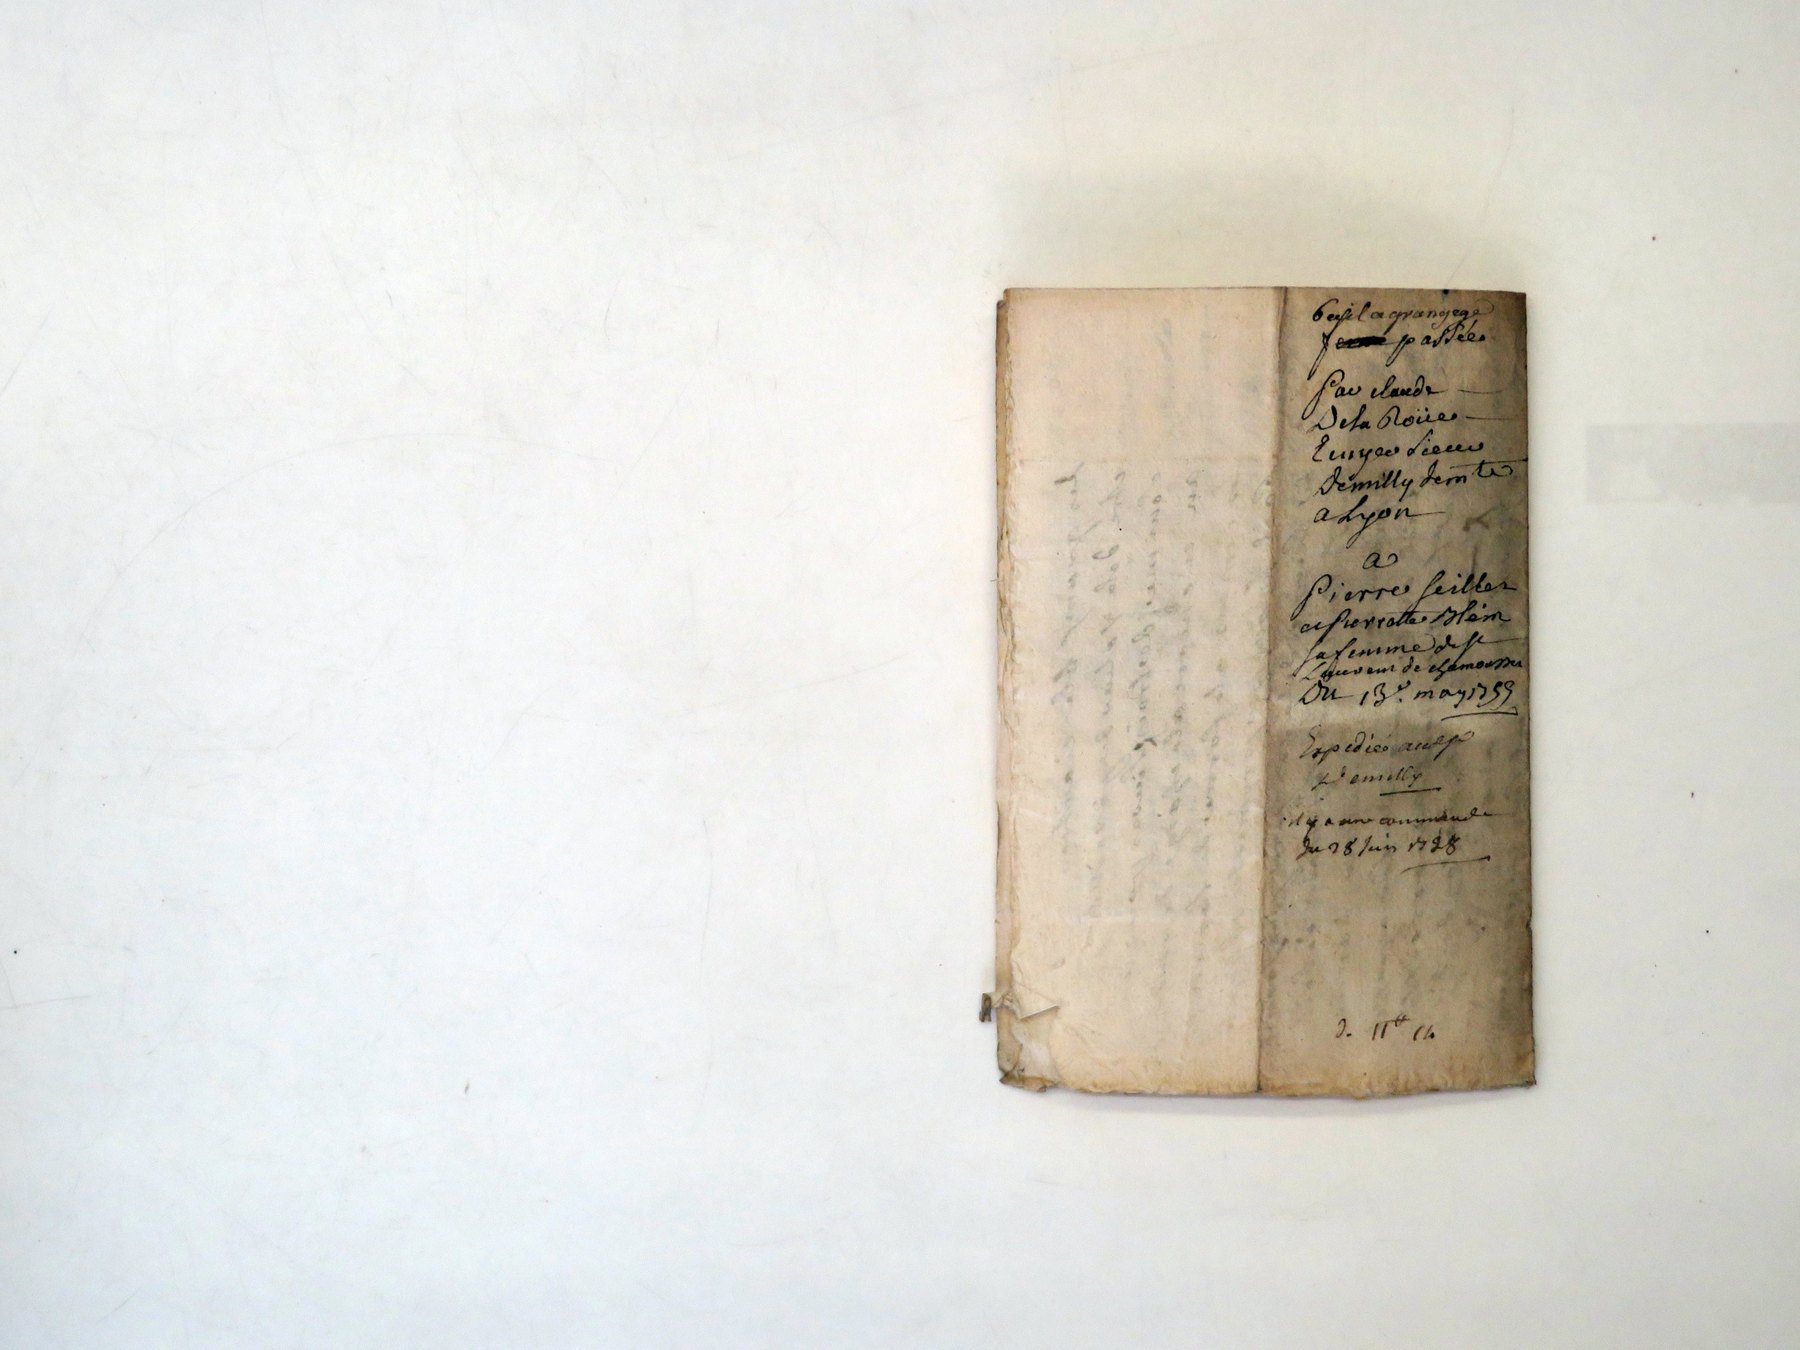 bail a grangege
ferme passée
Par claude
Dela Roüe
Ecuyer Sieur
Demilly demt
a Lyon
a
Pierre
et Pierrotte
sa femme de St
Laurent de chamousset
Du 13e. may 1753
Expediée audsr
Demilly
il y a une commande
du 28 Juin 1738
d. 11tt